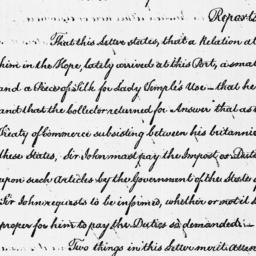 Reports
That this Letter states, that a Relation at
him in the Hope, lately arrived at this Port, a small
and a Piece of Silk for Lady Temple's Use — that he
and that the Collector returned for Answer "that as
Treaty of Commerce subsisting between his britannic
these States, Sir John must pay the Impost or Duties
upon such Articles by the Government of the State of
Sir John requests to be informed, whether or not it
proper for him to pay the Duties so demanded.—
Two things in this Letter merit